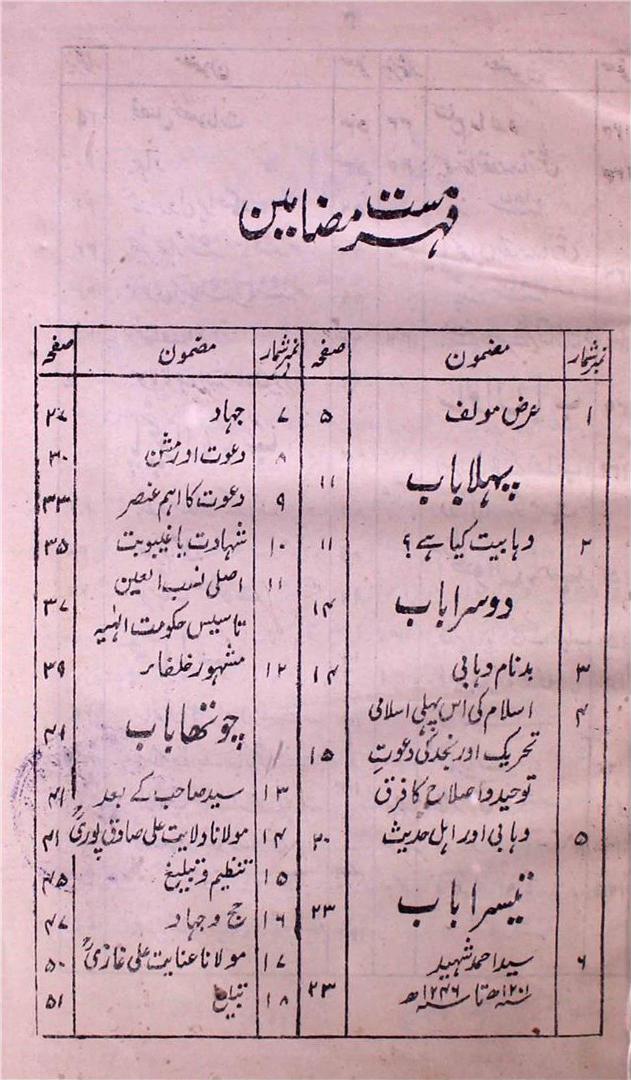 فہرست مضامین
نمبر شمار مضمون صفحہ
۱ عرض مولف ۵
پہلا باب ۱۱
۲ وہابیت کیا ہے؟ ۱۱
دوسرا باب ۱۴
۳ بدنام وہابی ۱۴
۴ اسلام کی اس پہلی اسلامی
تحریک اور نجد کی دعوتِ ۱۵
توحید و اصلاح کا فرق
۵ وہابی اور اہل حدیث ۲۰
تیسرا باب ۲۳
۶ سید احمد شہید
۱۲۰۱ھ تا سنہ ۱۲۴۶ھ ۲۳
نمبر شمار مضمون صفحہ
۷ جہاد ۲۷
۸ دعوت اور مشن ۳۰
۹ دعوت کا اہم عنصر ۳۳
۱۰ شہادت یا غیبوبت ۳۵
۱۱ اصلی نصب العین
تاسیس حکومت الٰہیہ ۳۷
۱۲ مشہور خلفاء ۳۹
چوتھا باب ۴۱
۱۳ سید صاحب کے بعد ۴۱
۱۴ مولانا ولایت علی صادق پوریؒ ۴۱
۱۵ تنظیم و تبلیغ ۴۵
۱۶ حج و جہاد ۴۷
۱۷ مولانا عنایت علی غازیؒ ۵۰
۱۸ تبلیغ ۵۱